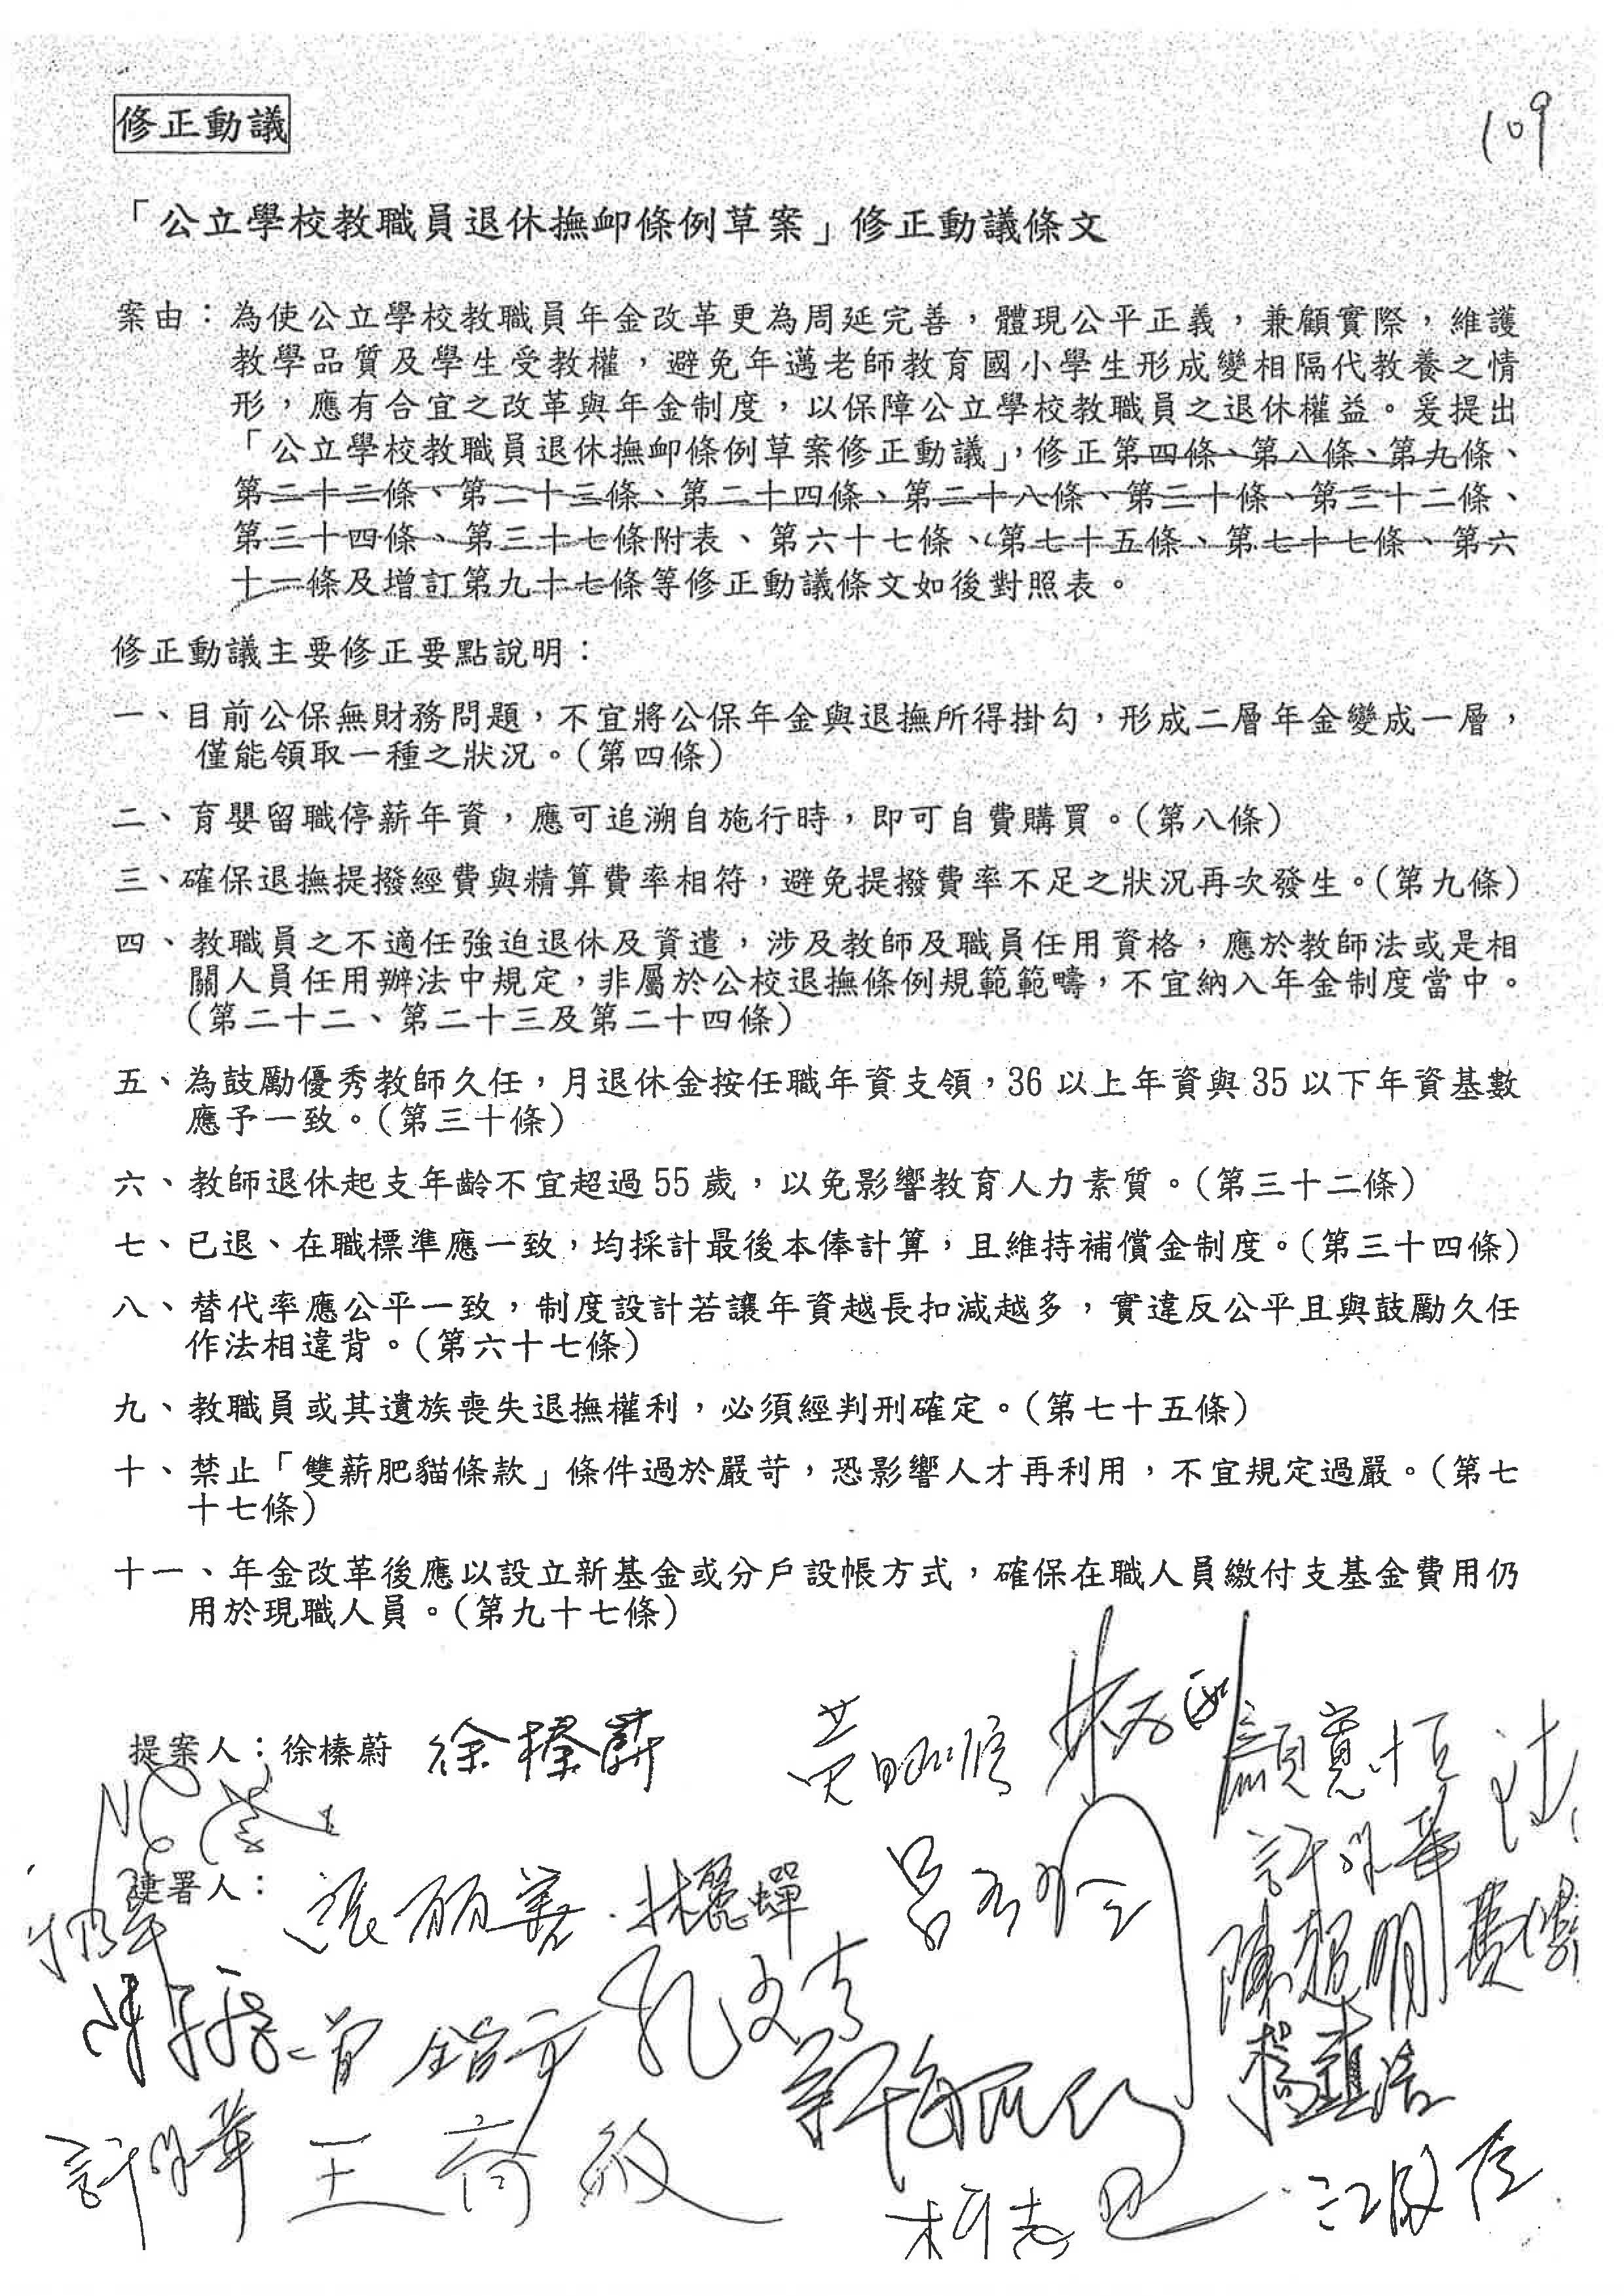 修正動議
109
「公立學校教職員退休撫卹條例草案」修正動議條文
案由：為使公立學校教職員年金改革更為周延完善，體現公平正義，兼顧實際，維護
教學品質及學生受教權，避免年邁老師教育國小學生形成變相隔代教養之情
形，應有合宜之改革與年金制度，以保障公立學校教職員之退休權益。爰提出
「公立學校教職員退休撫卹條例草案修正動議」，修正第四條、第八條、第九條、
第二十二條、第二十三條、第二十四條、第二十八條、第三十條、第三十二條、
第三十四條、第三十七條附表、第六十七條、第七十五條、第七十七條、第六
十一條及增訂第九十七條等修正動議條文如後對照表。
修正動議主要修正要點說明：
一、目前公保無財務問題，不宜將公保年金與退撫所得掛勾，形成二層年金變成一層，
僅能領取一種之狀況。（第四條）
二、育嬰留職停薪年資，應可追溯自施行時，即可自費購買。（第八條）
三、確保退撫提撥經費與精算費率相符，避免提撥費率不足之狀況再次發生。（第九條）
四、教職員之不適任強迫退休及資遣，涉及教師及職員任用資格，應於教師法或是相
關人員任用辦法中規定，非屬於公校退撫條例規範範疇，不宜納入年金制度當中。
（第二十二、第二十三及第二十四條）
五、為鼓勵優秀教師久任，月退休金按任職年資支領，36 以上年資與 35 以下年資基數
應予一致。（第三十條）
六、教師退休起支年齡不宜超過 55 歲，以免影響教育人力素質。（第三十二條）
七、已退、在職標準應一致，均採計最後本俸計算，且維持補償金制度。（第三十四條）
八、替代率應公平一致，制度設計若讓年資越長扣減越多，實違反公平且與鼓勵久任
作法相違背。（第六十七條）
九、教職員或其遺族喪失退撫權利，必須經判刑確定。（第七十五條）
十、禁止「雙薪肥貓條款」條件過於嚴苛，恐影響人才再利用，不宜規定過嚴。（第七
十七條）
十一、年金改革後應以設立新基金或分戶設帳方式，確保在職人員繳付支基金費用仍
用於現職人員。（第九十七條）
提案人：徐榛蔚 徐榛蔚 黃昭順 顏寬恒
連署人： 張麗善 林麗蟬 呂玉玲 許淑華
陳超明
曾銘宗 孔文吉
楊鎮浯
許淑華 王育敏 柯志恩 江啟臣